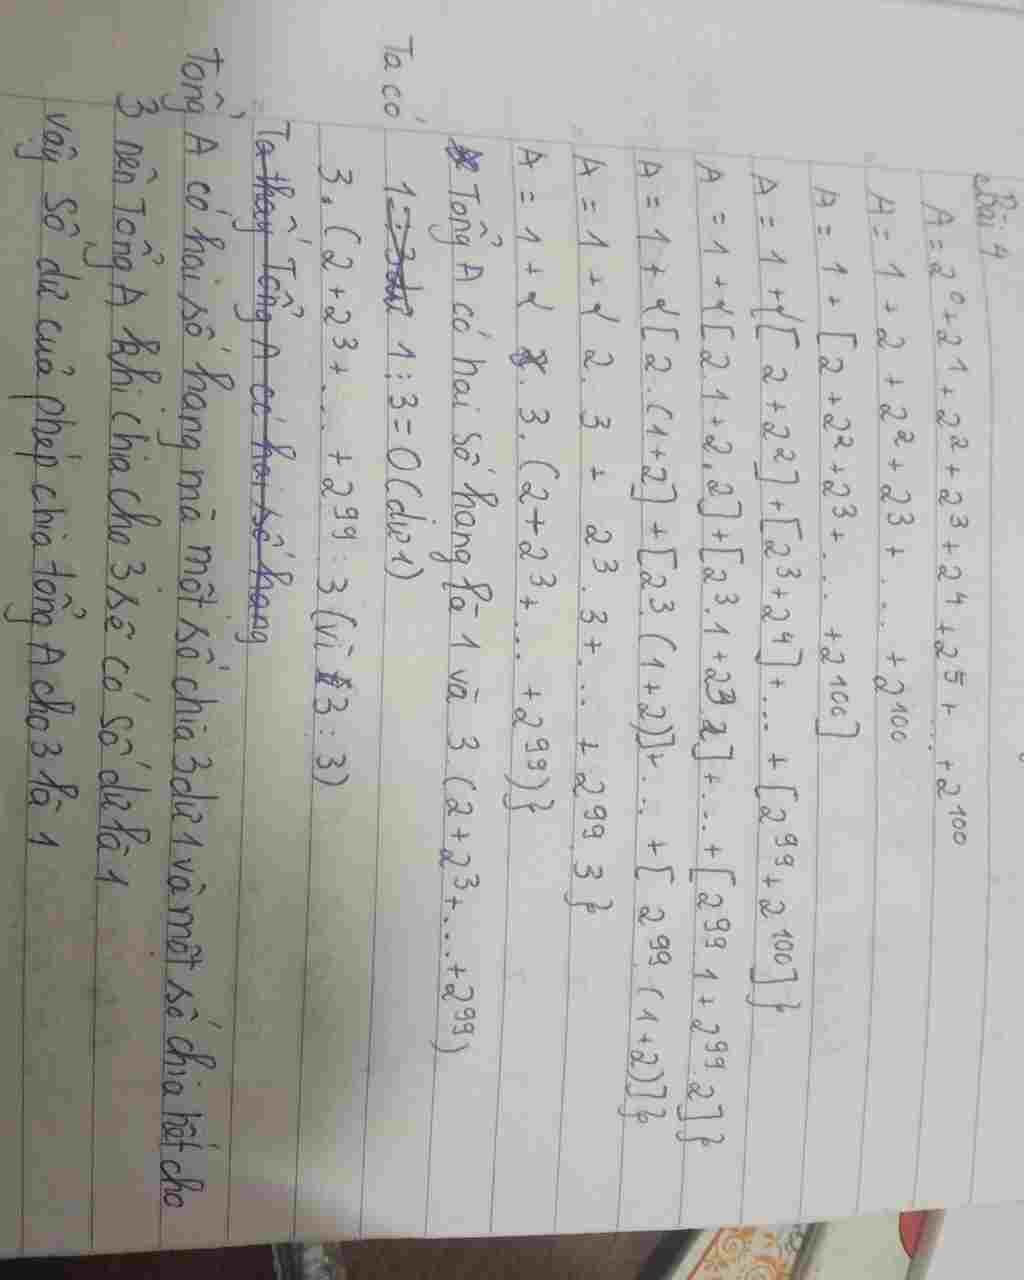 Bài 4
A = 2⁰ + 2¹ + 2² + 2³ + 2⁴ + 2⁵ + ... + 2¹⁰⁰
A = 1 + 2 + 2² + 2³ + ... + 2¹⁰⁰
A = 1 + [2 + 2² + 2³ + ... + 2¹⁰⁰]
A = 1 + {[2 + 2²] + [2³ + 2⁴] + ... + [2⁹⁹ + 2¹⁰⁰]}
A = 1 + {[2.1 + 2.2] + [2³.1 + 2³.2] + ... + [2⁹⁹.1 + 2⁹⁹.2]}
A = 1 + {[2.(1+2] + [2³.(1+2)] + ... + [2⁹⁹.(1+2)]}
A = 1 + { 2.3 + 2³.3 + ... + 2⁹⁹.3}
A = 1 + { 3.(2 + 2³ + ... + 2⁹⁹)}
Tổng A có hai số hạng là 1 và 3.(2 + 2³ + ... + 2⁹⁹)
Ta có 1 : 3 = 0 (dư 1)
3.(2 + 2³ + ... + 2⁹⁹ : 3 (vì 3 : 3)
Ta thấy Tổng A có hai số hạng
Tổng A có hai số hạng mà một số chia 3 dư 1 và một số chia hết cho
3 nên Tổng A khi chia cho 3 sẽ có số dư là 1
vậy số dư của phép chia tổng A cho 3 là 1